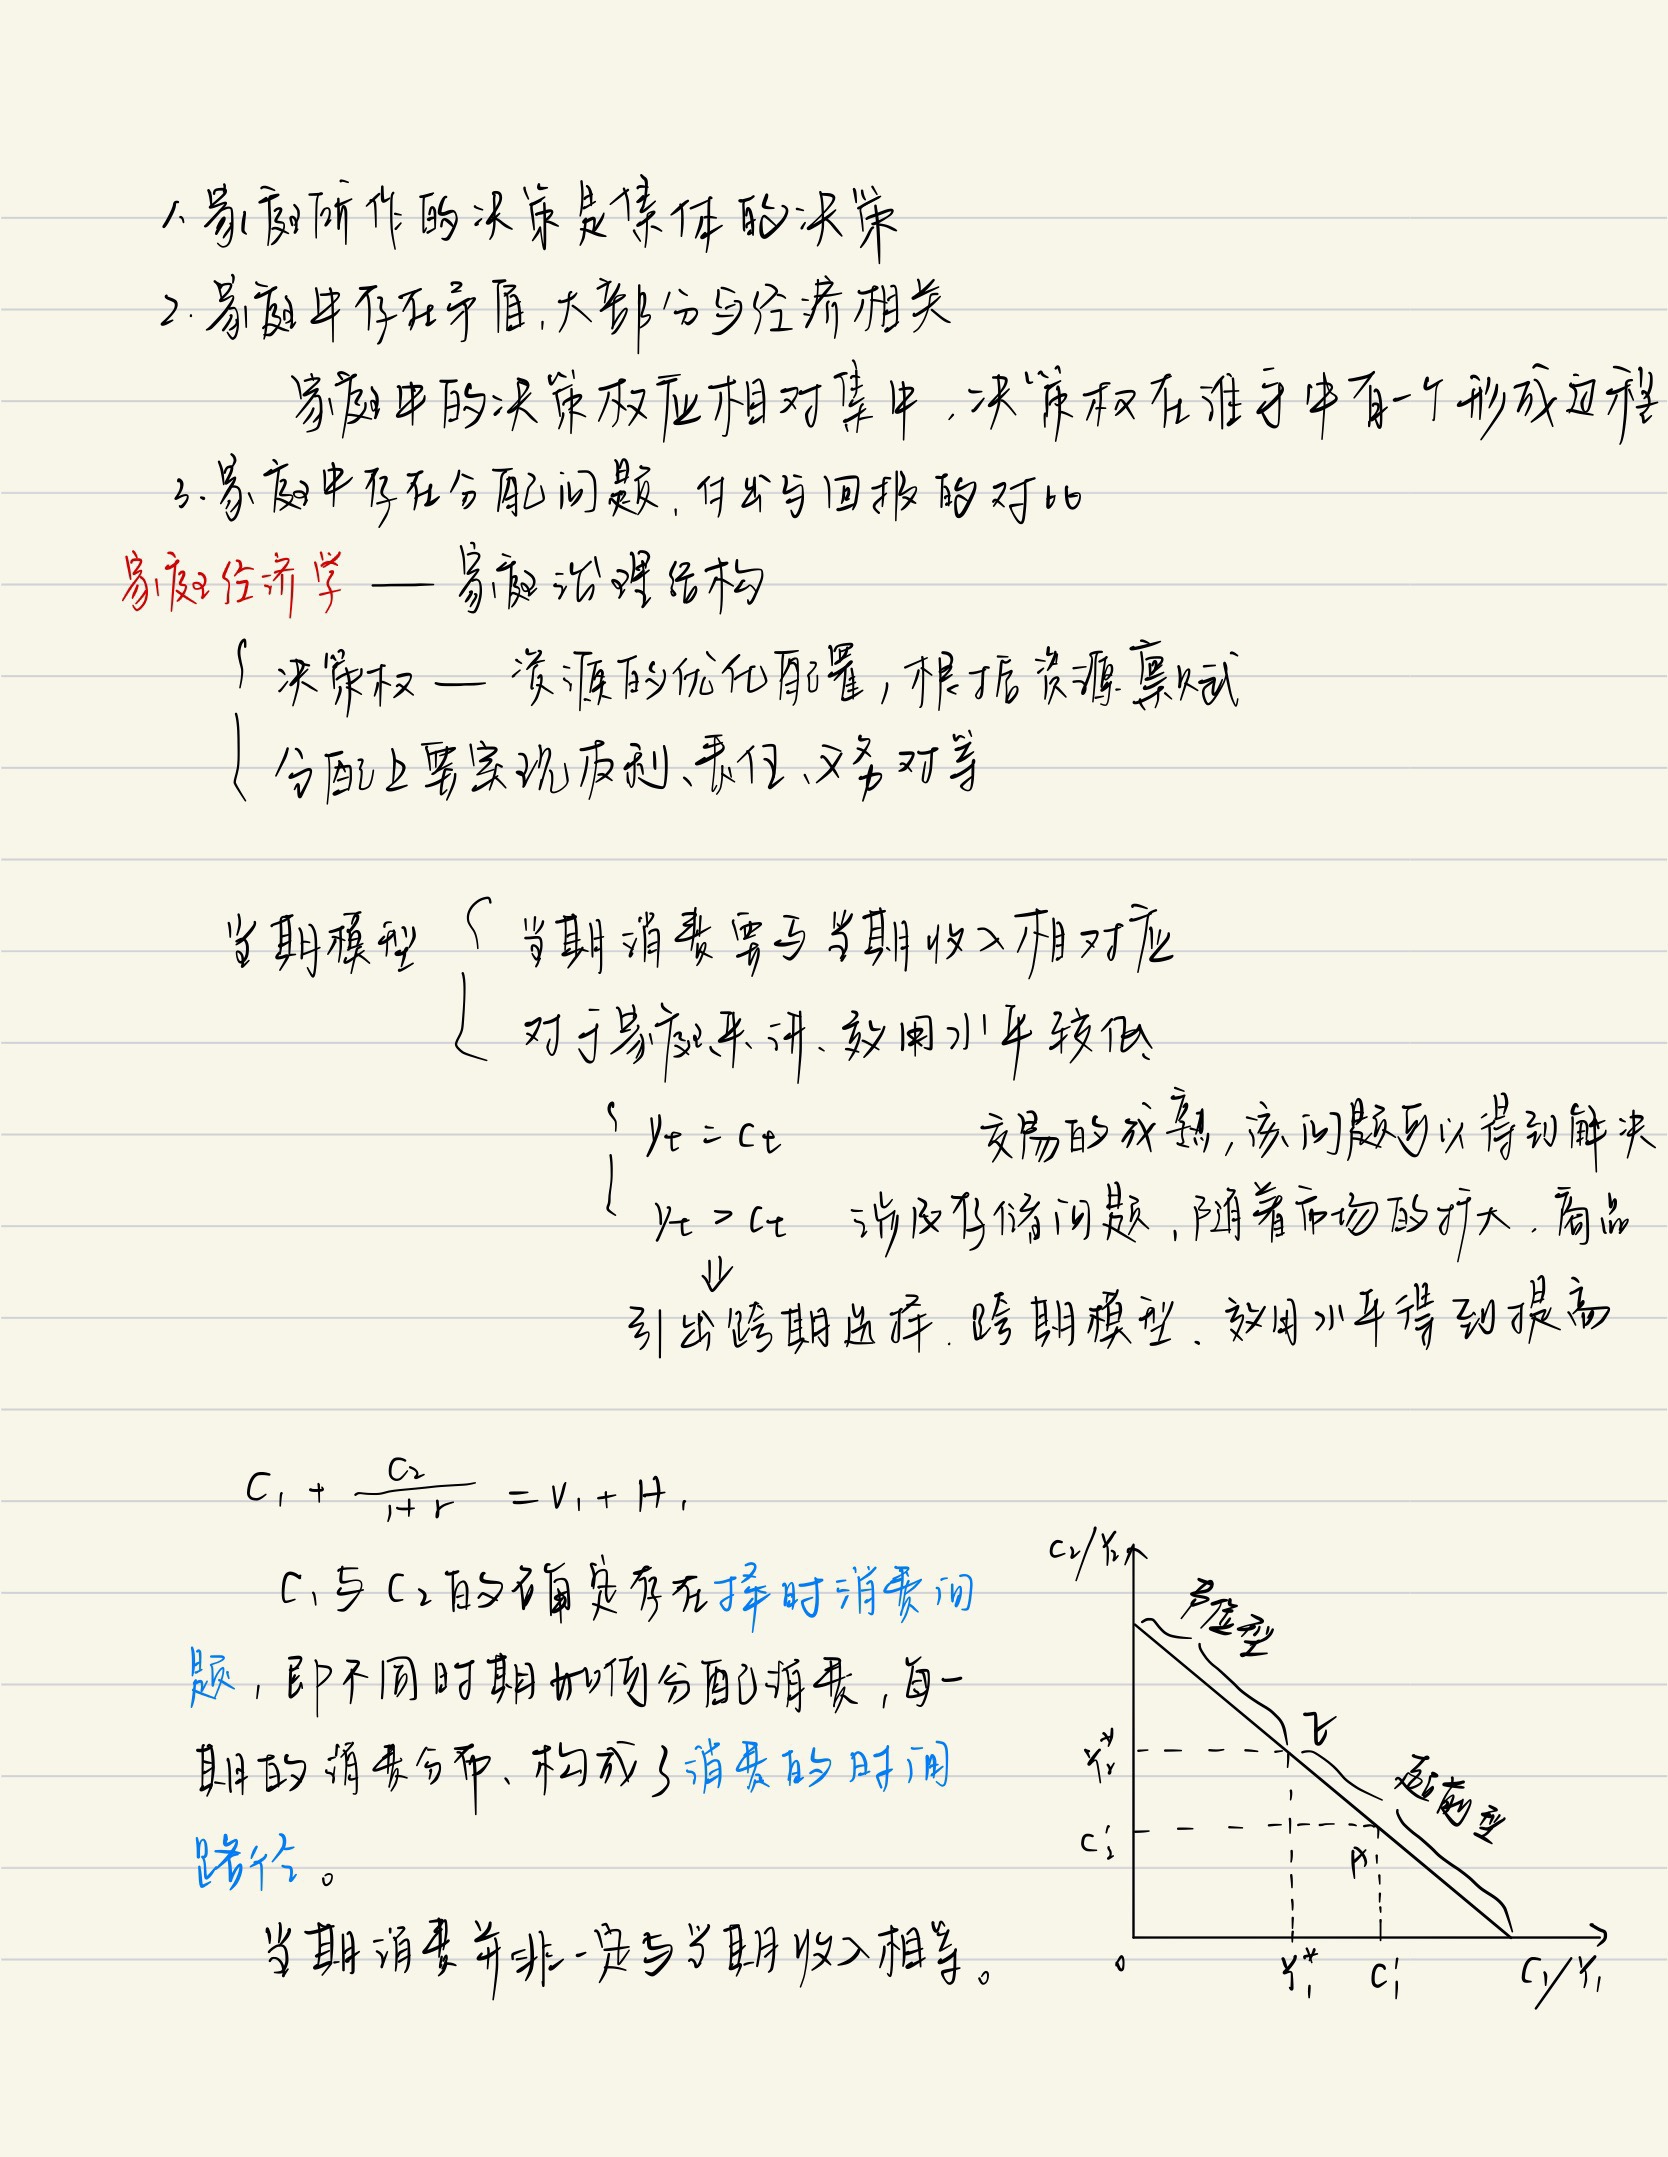 1.家庭所作的决策是集体的决策
2.家庭中存在矛盾,大部分与经济相关
家庭中的决策权应相对集中,决策权在谁手中有一个形成过程
3.家庭中存在分配问题,付出与回报的对比
家庭经济学 — 家庭治理结构
决策权 — 资源的优化配置,根据资源禀赋
分配上要实现权利、责任、义务对等
当期模型 { 当期消费要与当期收入相对应
对于家庭来讲、效用水平较低
yt = ct 交易的成熟,该问题可以得到解决
yt > ct 涉及存储问题,随着市场的扩大.商品
↓
引出跨期选择.跨期模型、效用水平得到提高
C₁ + C₂/(1+r) = V₁ + H₁
C₁与C₂的确定存在择时消费问
题,即不同时期如何分配消费,每一
期的消费分布、构成了消费的时间
路径。
当期消费并非一定与当期收入相等。
C₂/Y₂
型
E
Y₂*
超前型
C₂'
A
0
Y₁*
C₁'
C₁/Y₁